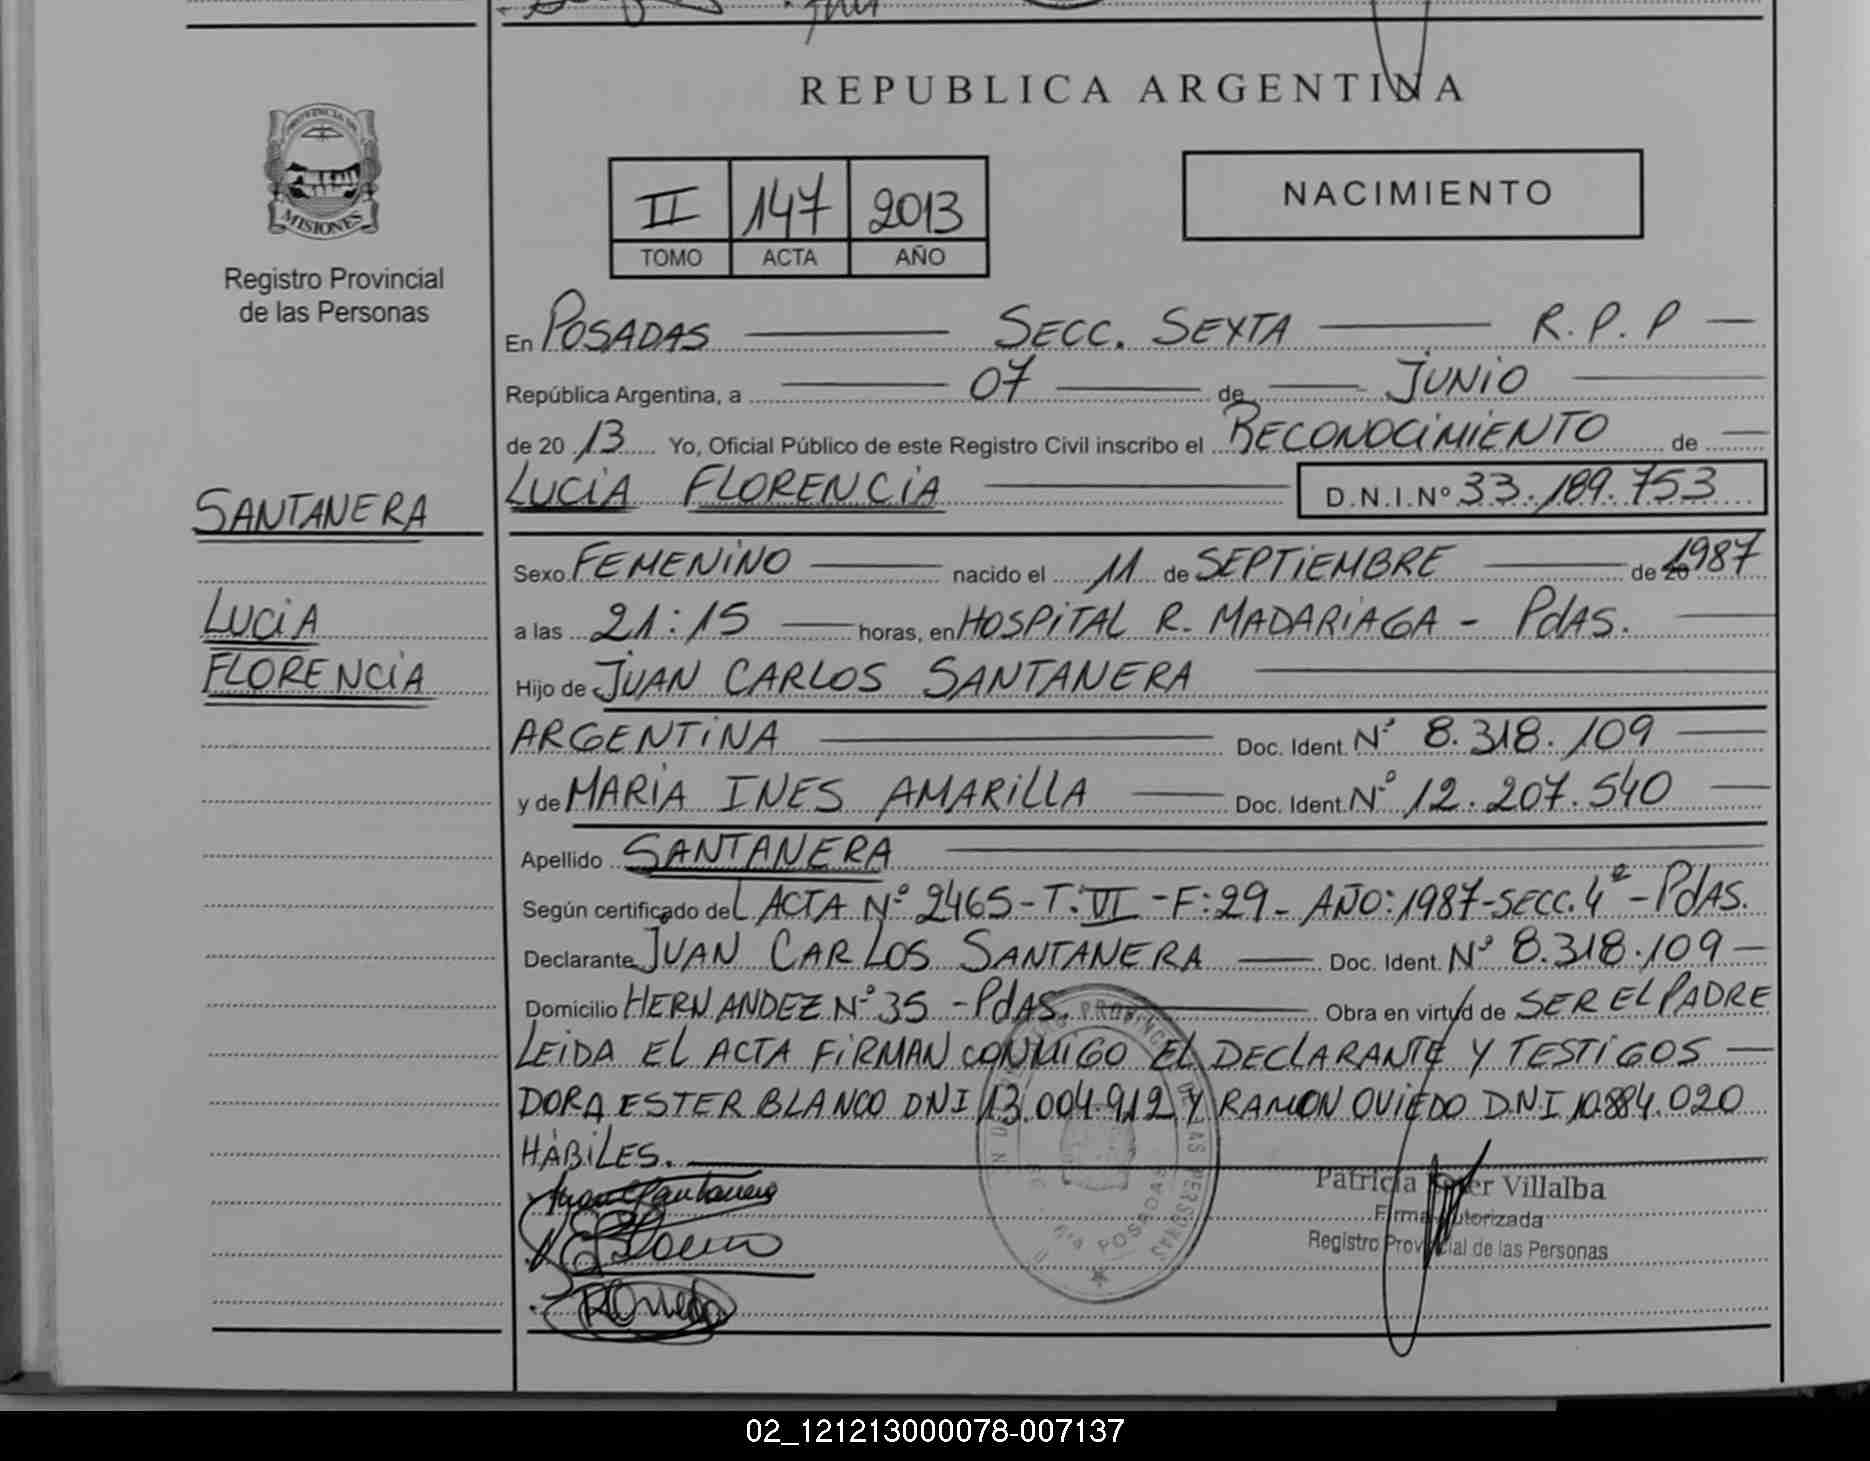 REPUBLICA ARGENTINA
PROVINCIA DE
MISIONES
Registro Provincial
de las Personas
II 147 2013
TOMO ACTA AÑO
NACIMIENTO
En POSADAS SECC. SEXTA R.P.P
República Argentina, a 07 de JUNIO
de 20 13 Yo, Oficial Público de este Registro Civil inscribo el RECONOCIMIENTO de
SANTANERA
LUCIA
FLORENCIA
LUCIA FLORENCIA D.N.I.Nº 33.189.753
Sexo FEMENINO nacido el 11 de SEPTIEMBRE de 1987
a las 21:15 horas, en HOSPITAL R. MADARIAGA - PdAS.
Hijo de JUAN CARLOS SANTANERA
ARGENTINA Doc. Ident. Nº 8.318.109
y de MARIA INES AMARILLA Doc. Ident. Nº 12.207.540
Apellido SANTANERA
Según certificado del ACTA Nº 2465-T:VI-F:29- AÑO:1987-SECC.4ª-PdAS.
Declarante JUAN CARLOS SANTANERA Doc. Ident. Nº 8.318.109
Domicilio HERNANDEZ Nº 35 -PdAS. Obra en virtud de SER EL PADRE
LEIDA EL ACTA FIRMAN CONMIGO EL DECLARANTE Y TESTIGOS
DORA ESTER BLANCO DNI 13.004.912 Y RAMON OVIEDO DNI 10.884.020
HÁBILES.
Patricia Villalba
Firma Autorizada
Registro Provincial de las Personas
POSADAS
02_121213000078-007137